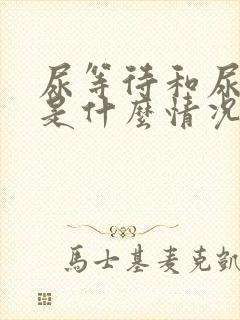 尿等待和尿
是什麼情況
馬士基麦克凱